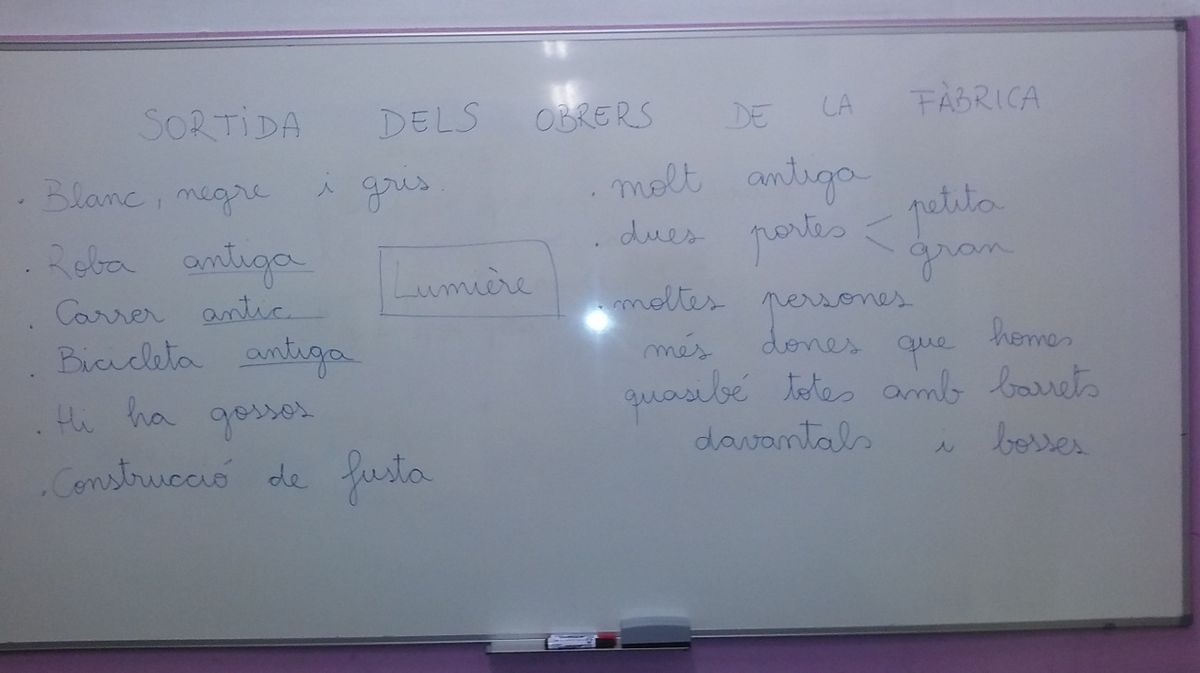 SORTIDA DELS OBRERS DE LA FÀBRICA
. Blanc, negre i gris.
. Roba antiga
. Carrer antic
. Bicicleta antiga
. Hi ha gossos
. Construcció de fusta
Lumière
. molt antiga
. dues portes < petita
gran
. moltes persones
més dones que homes
quasibé totes amb barrets
davantals i bosses